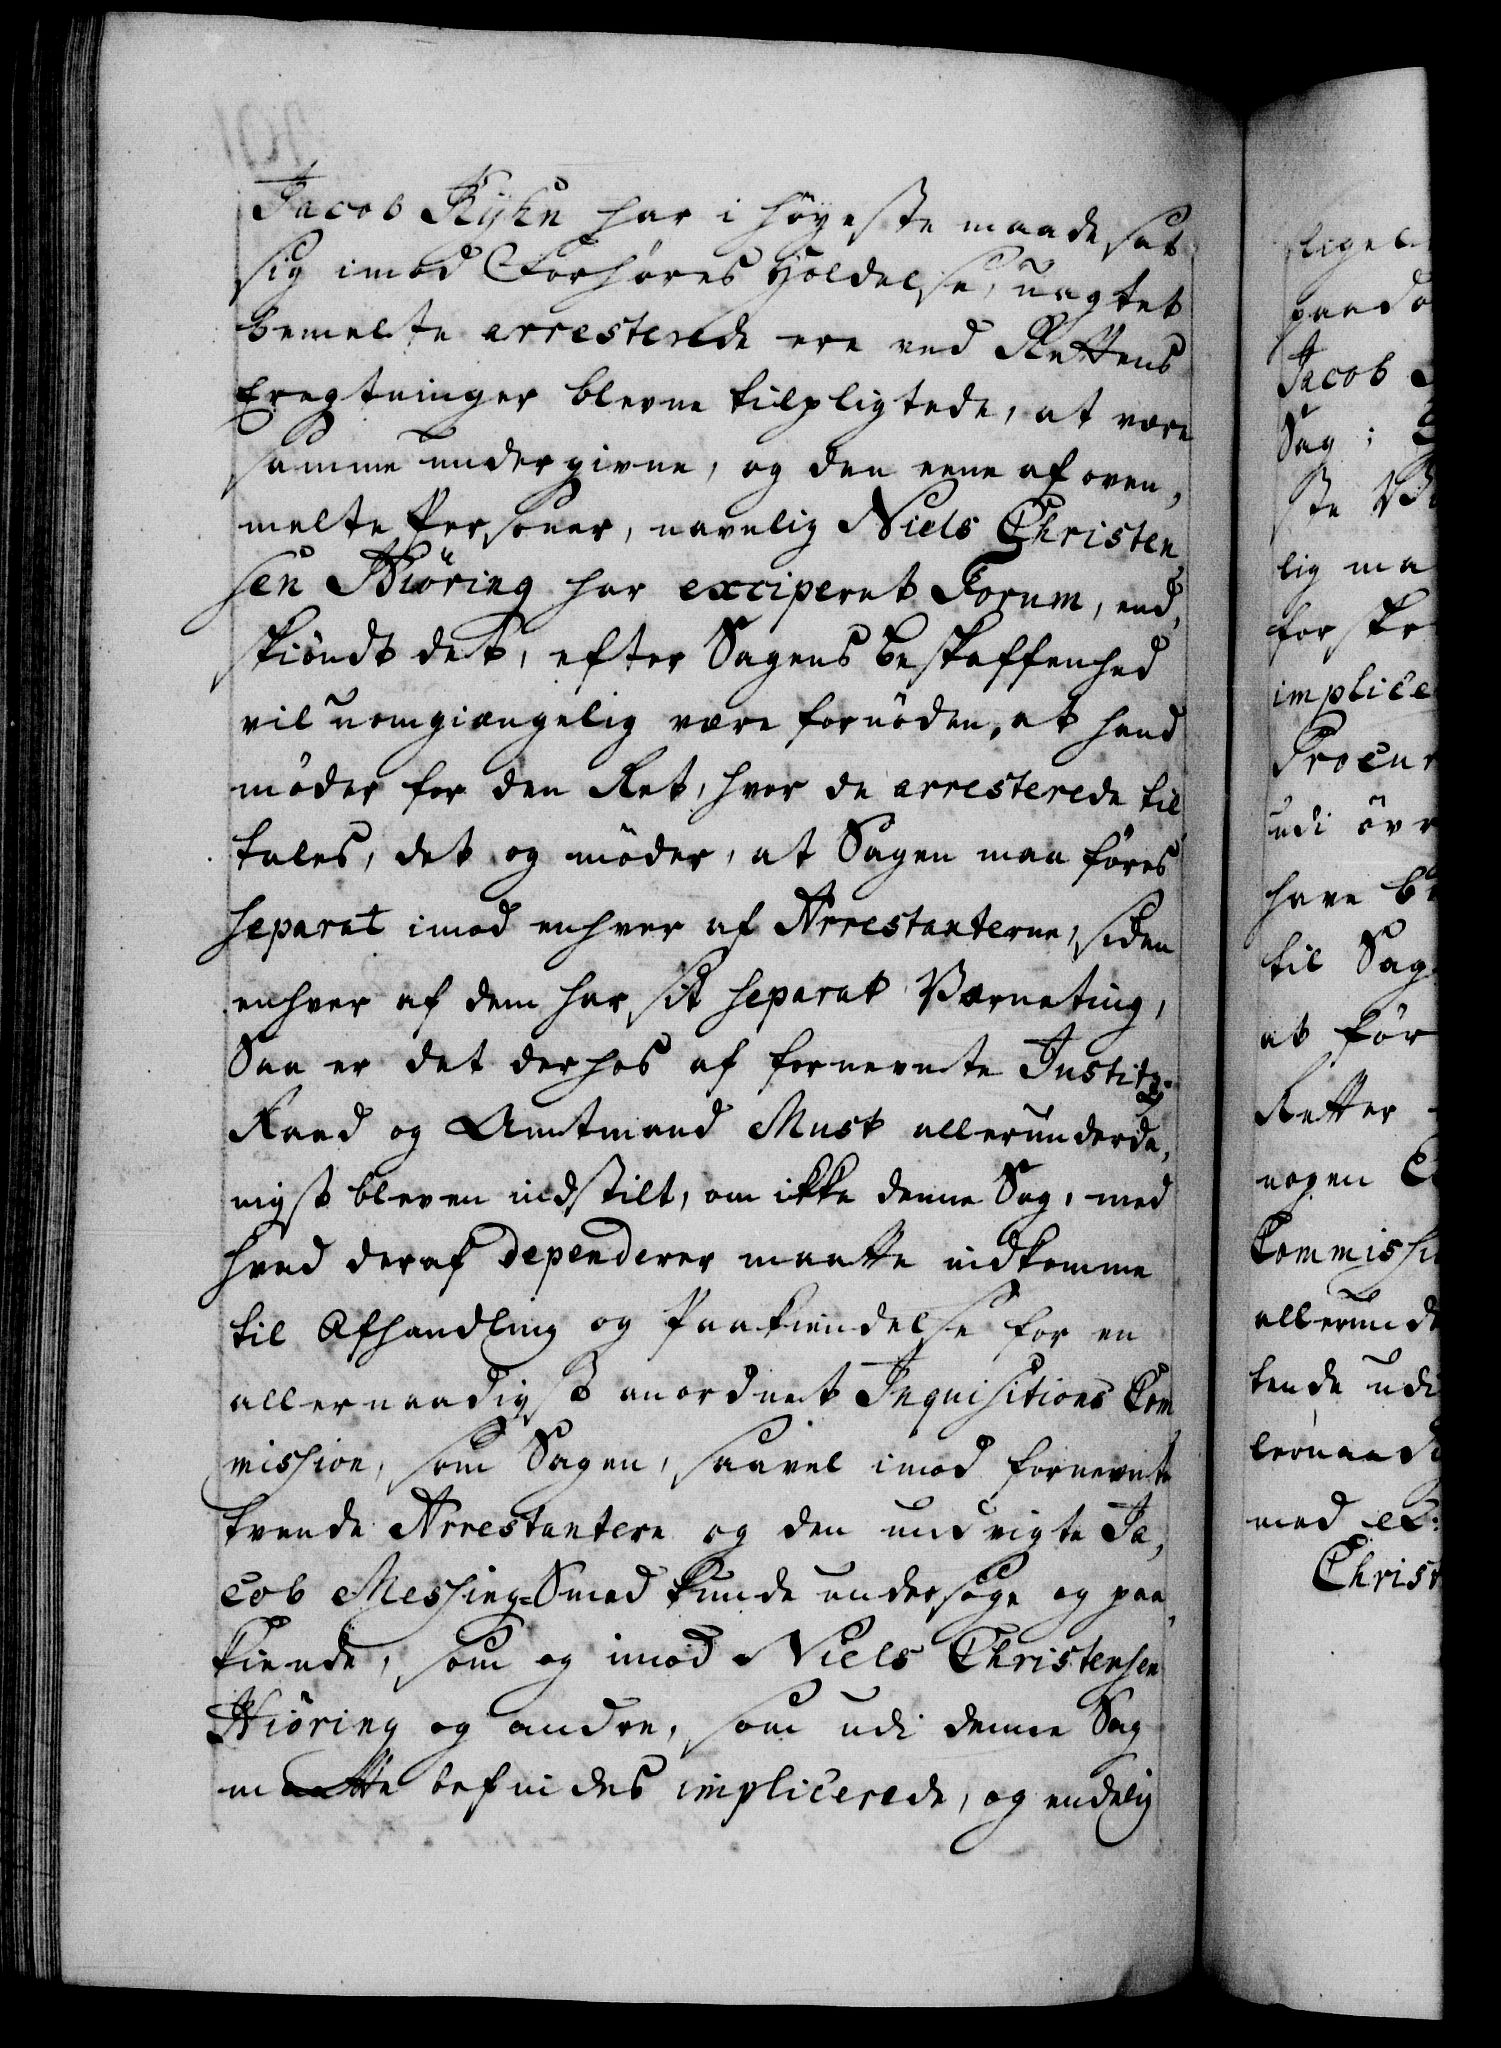 Jacob Kyhn har i høyeste maade sat
sig imod Forhøres Holdelse, uagtet
bemelte arresterede ere ved Rettens
Eragtninger blevne tilpligtede, at være
samme undergivne, og den eene af oven,
melte Persohner, navnlig Niels Christen,
sen Hiöring har exciperet Forum, end,
skiöndt det, efter Sagens beskaffenhed
vil uomgiængelig være fornöden, at hand
möder for den Ret, hvor de arresterede til
tales, det og möder, at Sagen maa föres
separat imod enhver af Arrestanterne, siden
enhver af dem har sit separat Værneting,
Saa er det derhos af fornevnte Justitz-
Raad og Amtmand Musk allerunderda,
nigst bleven indstilt, om ikke denne Sag, med
hvad deraf dependerer maatte indkomme
til Afhandling og Paakiendelse for en
allernaadigst anordnet Inquisitions Com
mission, som Sagen, saavel imod fornevnte
tvende Arrestantere og den undvigte Ja,
cob Messing-Smed kunde undersöge og paa,
kiende, som og imod Niels Christensen
Hiöring og andre, som udi denne Sag
maatte befindes implicerede, og endelig
ligel
Jacob
Sag;
ste
lig ma
for
implice
Procur
udi övr
have
til Sag
at för
Retter
nogen
Commissi
allerund
tende udi
med
Christ